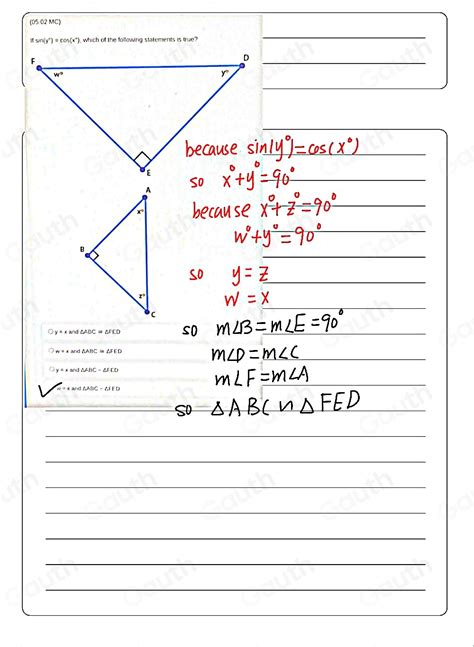 (05.02 MC)
If sin(y°) = cos(x°), which of the following statements is true?
F
D
w°
y°
E
A
x°
B
z°
C
y = x and ΔABC ≅ ΔFED
w = x and ΔABC ≅ ΔFED
y = x and ΔABC ~ ΔFED
w = x and ΔABC ~ ΔFED
because sin(y°)=cos(x°)
so x°+y°=90°
because x°+z°=90°
w°+y°=90°
so y=z
w=x
so m∠B=m∠E=90°
m∠D=m∠C
m∠F=m∠A
so ΔABC ∽ ΔFED
Gauth